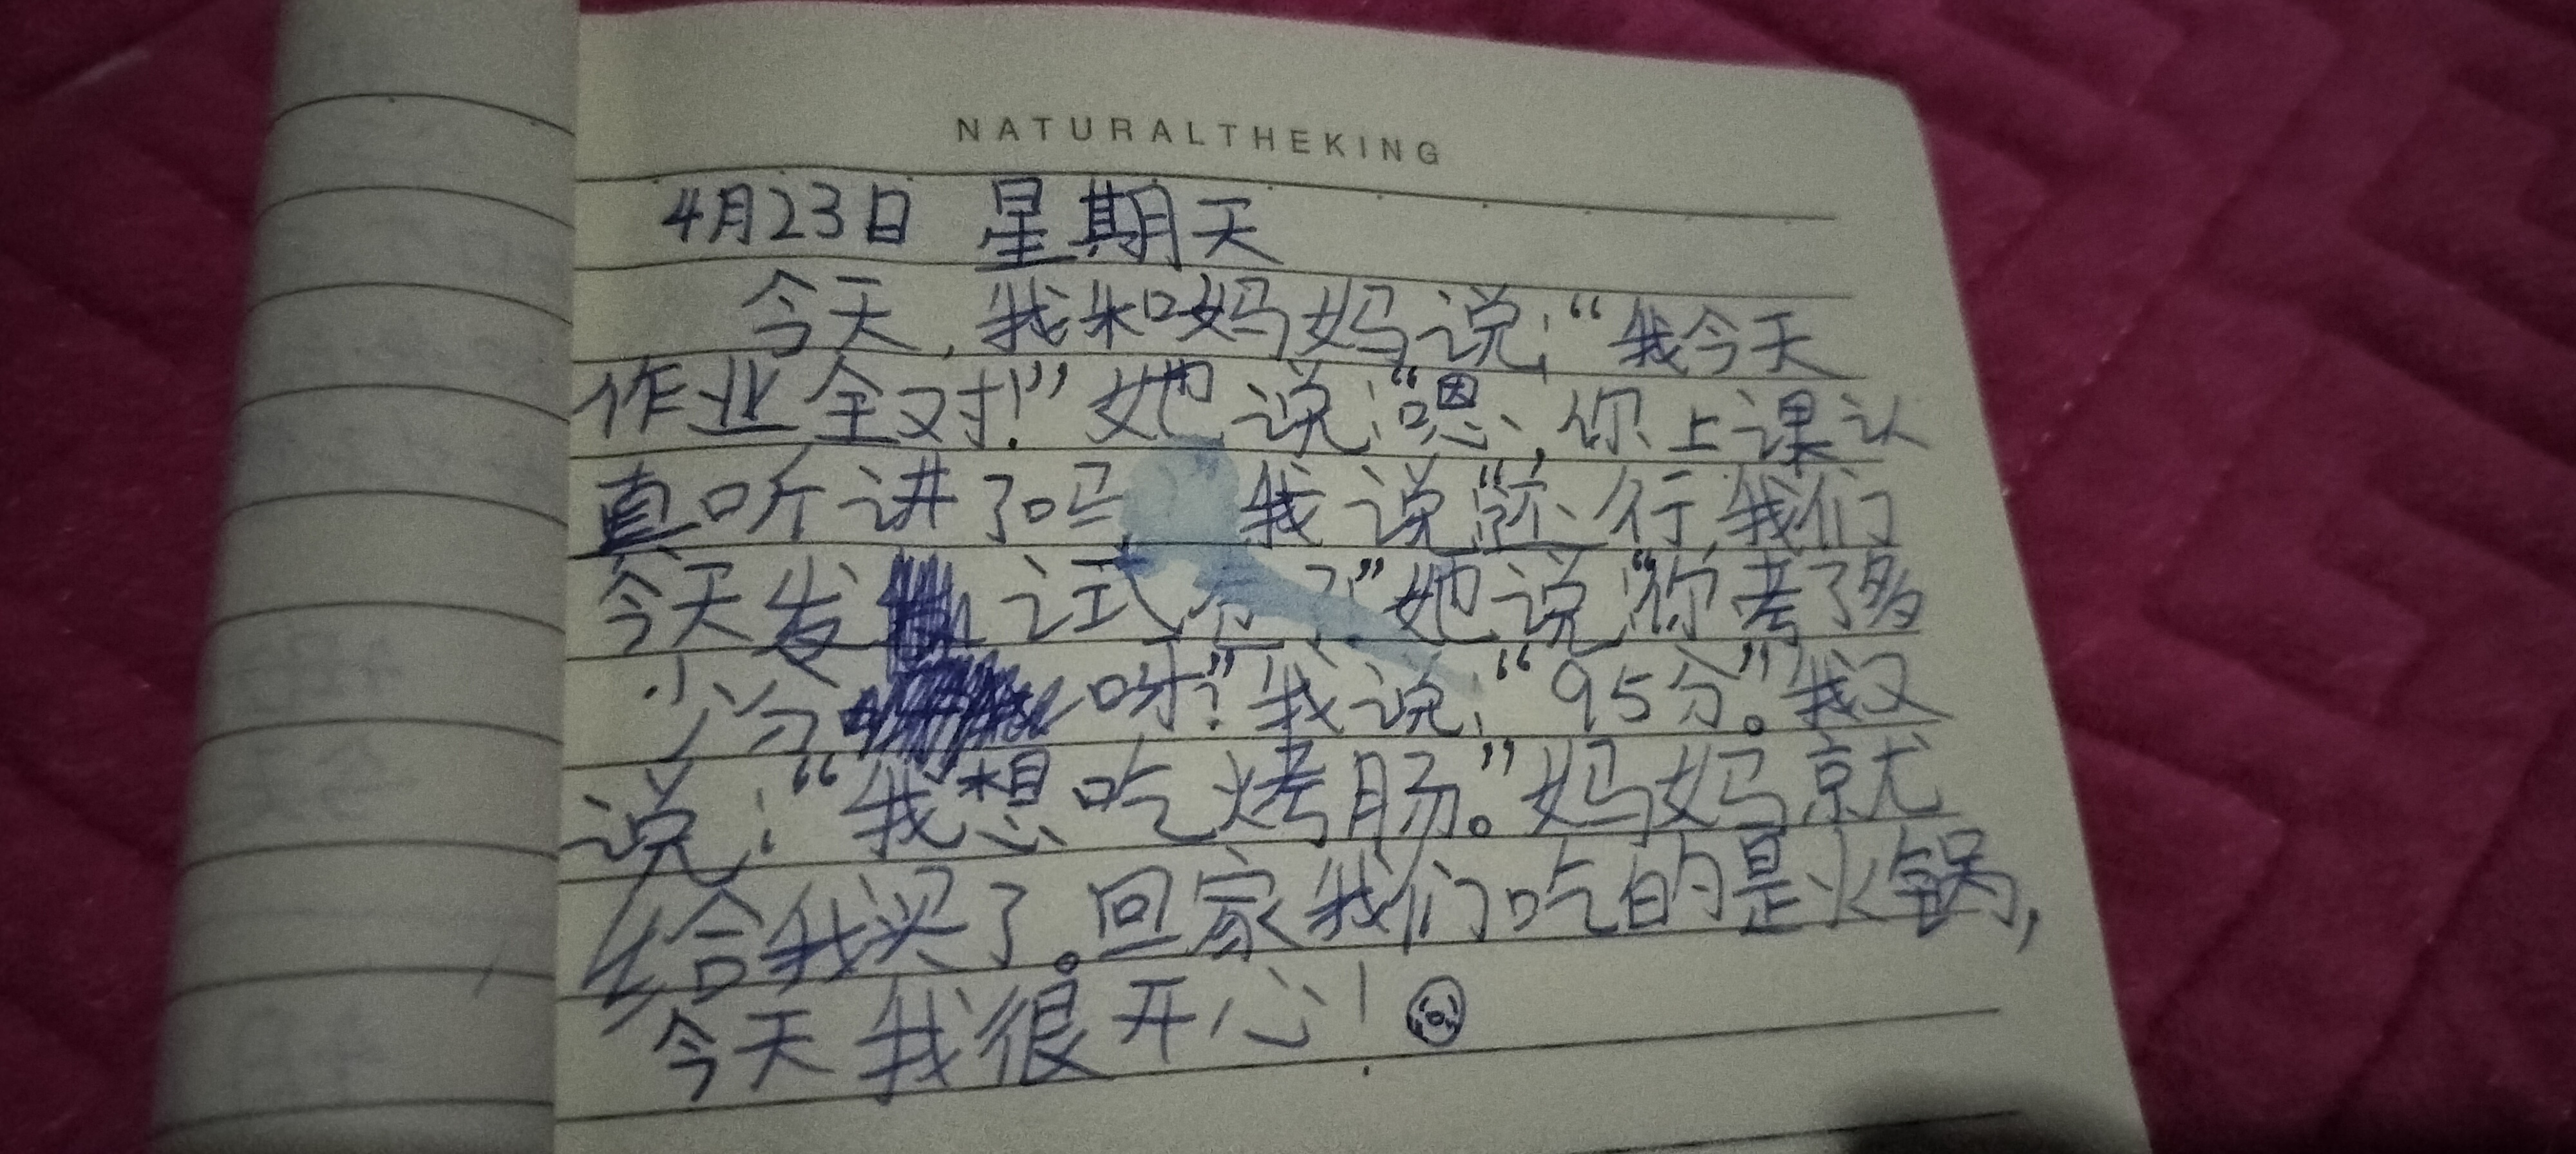 NATURALTHEKING
4月23日 星期天
今天,我和妈妈说:“我今天
作业全对!”她说:“嗯,你上课认
真听讲了吗 我说“还行,我们
今天发 试 了”她说“你考了多
少分 呀?”我说:“95分”。我又
说:“我想吃烤肠。”妈妈就
给我买了。回家我们吃的是火锅,
今天我很开心!